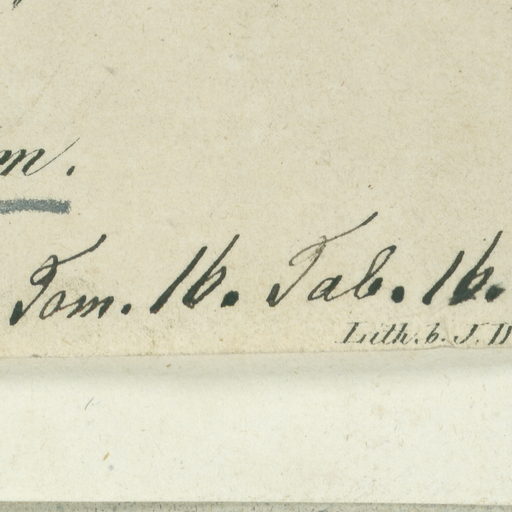 Tom. 16. Tab. 16.
Lith. b. J.